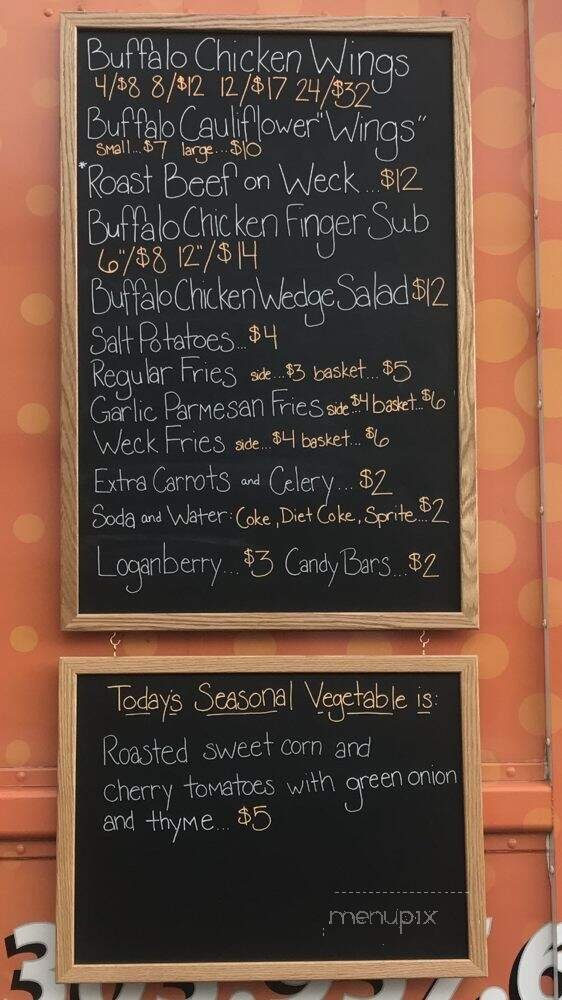 Buffalo Chicken Wings
4/$8 8/$12 12/$17 24/$32
Buffalo Cauliflower "Wings"
small...$7 large...$10
*Roast Beef on Weck...$12
Buffalo Chicken Finger Sub
6"/$8 12"/$14
Buffalo Chicken Wedge Salad $12
Salt Potatoes...$4
Regular Fries side...$3 basket...$5
Garlic Parmesan Fries side $4 basket...$6
Weck Fries side...$4 basket...$6
Extra Carrots and Celery...$2
Soda and Water: Coke, Diet Coke, Sprite...$2
Loganberry...$3 Candy Bars...$2
Today's Seasonal Vegetable is:
Roasted sweet corn and
cherry tomatoes with green onion
and thyme...$5
menupix